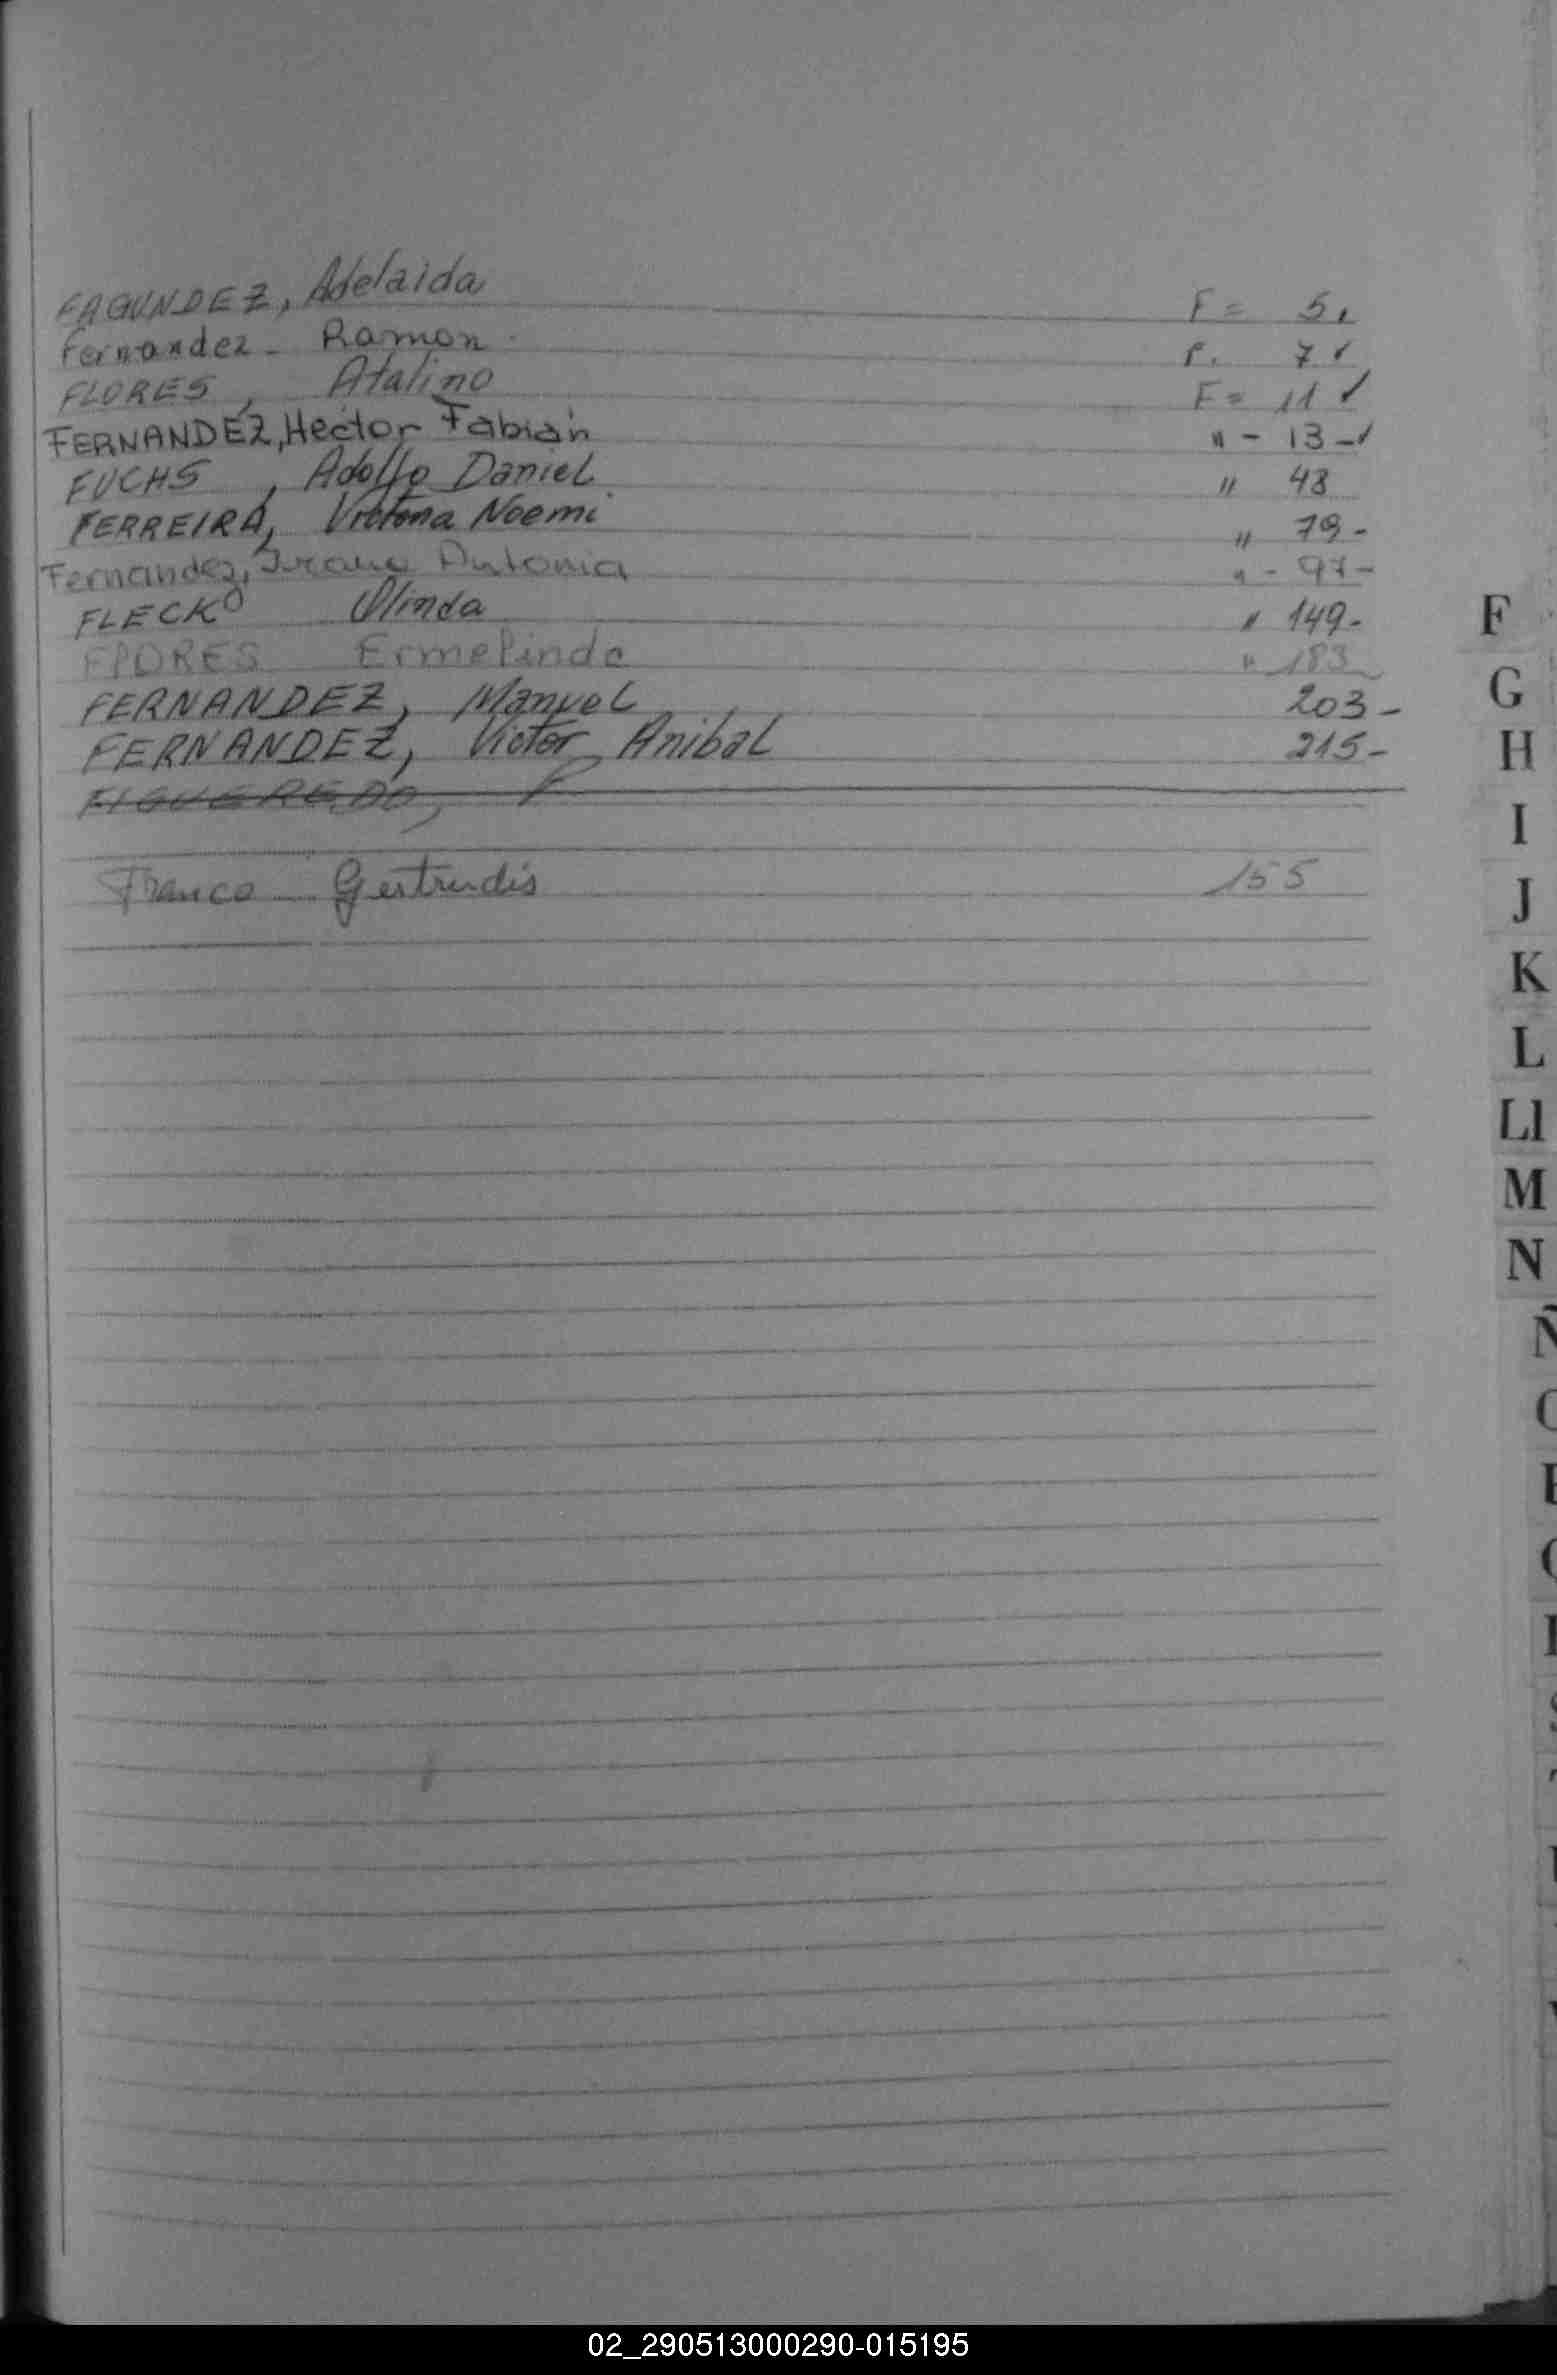 FAGUNDEZ, Adelaida F = 5.
Fernandez - Ramon F. 7 ✓
FLORES, Atalino F = 11 ✓
FERNANDEZ, Hector Fabián " - 13 - ✓
FUCHS, Adolfo Daniel " 48
FERREIRA, Victoria Noemi " 79 -
Fernandez, Antonia " - 97 -
FLECK Olinda " 149 -
FLORES Ermelinda " 183
FERNANDEZ, Manuel 203 -
FERNANDEZ, Victor Anibal 215 -
FIGUEREDO,
Franco Gertrudis 155
F
G
H
I
J
K
L
Ll
M
N
Ñ
02_290513000290-015195